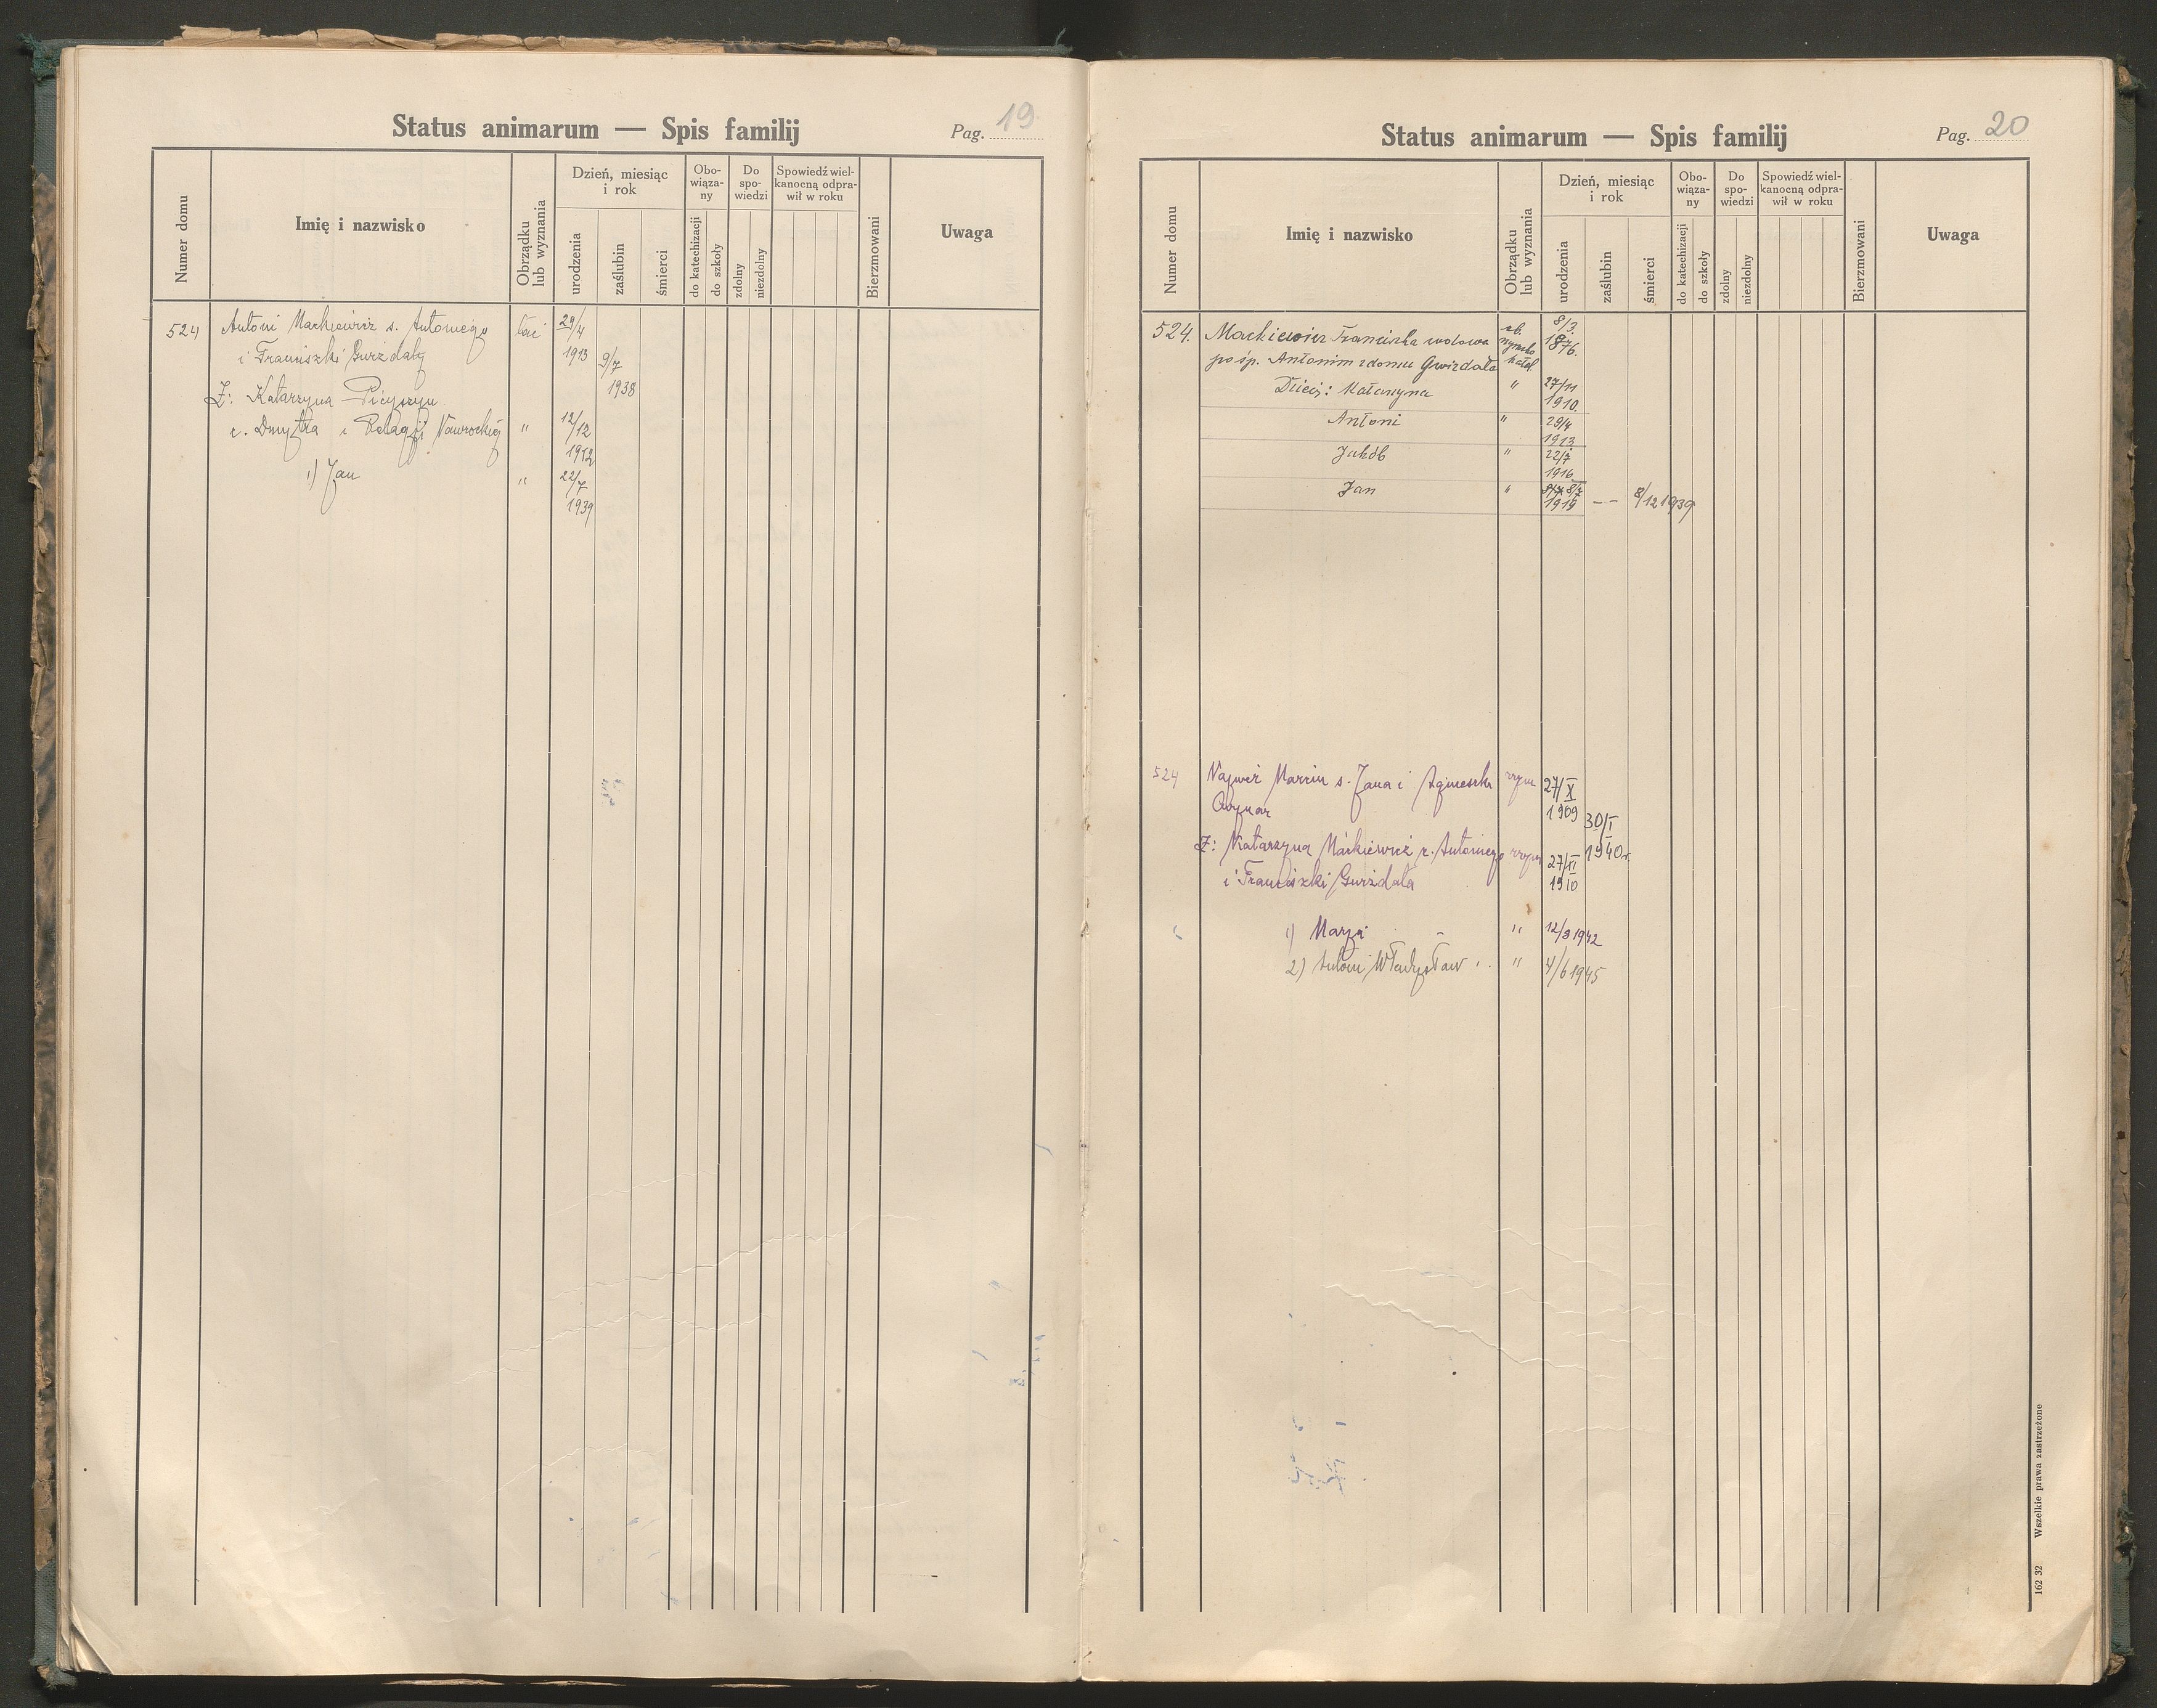 Status animarum — Spis familij
Pag. 19
Numer domu
Imię i nazwisko
Obrządku lub wyznania
Dzień, miesiąc i rok
urodzenia
zaślubin
śmierci
Obo-
wiąza-
ny
do katechizacji
do szkoły
Do
spo-
wiedzi
zdolny
niezdolny
Spowiedź wiel-
kanocną odpra-
wił w roku
Bierzmowani
Uwaga
524 Antoni Markiewicz s. Antoniego łać 29/4
i Franciszki Gwizdały 1913 9/7
1938
Ż: Katarzyna
c. Dmytra i Pelagji Nawrockiej " 12/12
1912
1) Jan " 22/7
1939
Status animarum — Spis familij
Pag. 20
Numer domu
Imię i nazwisko
Obrządku lub wyznania
Dzień, miesiąc i rok
urodzenia
zaślubin
śmierci
Obo-
wiąza-
ny
do katechizacji
do szkoły
Do
spo-
wiedzi
zdolny
niezdolny
Spowiedź wiel-
kanocną odpra-
wił w roku
Bierzmowani
Uwaga
524. Markiewicz Franciszka wdowa 8/3.
1876.
po śp. Antonim z domu Gwizdała
Dzieci: Katarzyna " 27/11
1910.
Antoni " 29/4
1913
Jakób " 22/7
1916
Jan " 8/7
1919 — — 8/12 1939
524 Marcin s. Jana i Agnieszki rzym 27/X
1909
30/I
1940r.
Ż: Katarzyna Markiewicz c. Antoniego rzym 27/XI
i Franciszki Gwizdała 1910
1) Marja " 12/3 1942
2) Antoni Władysław " 4/6 1945
162 32 Wszelkie prawa zastrzeżone